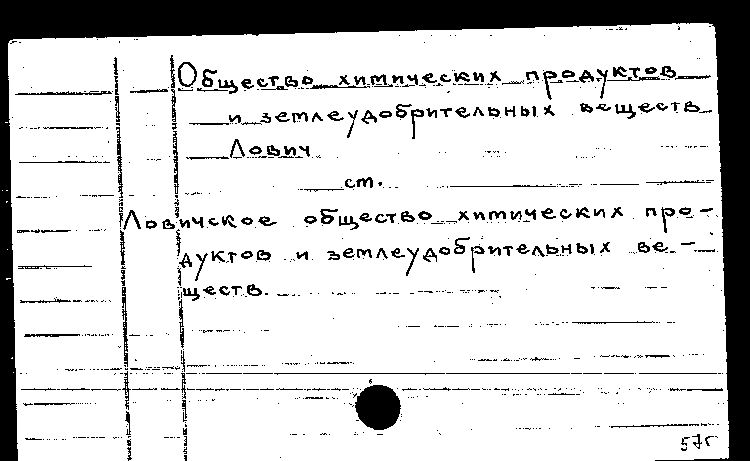 Общество химических продуктов
и землеудобрительных веществ
Лович
ст.
Ловичское общество химических про-
дуктов и землеудобрительных ве-
ществ.
57г